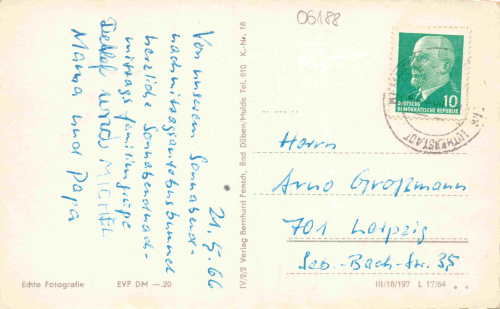 06188
21.5.66
Von unserem Sonnabend-
nachmittagsautobusbummel
herzliche Sonnabendnach-
mittags familiengrüße
Detlef und MICHEL
Mama und Papa
Echte Fotografie
EVP DM —.20
IV/2/2 Verlag Bernhard Fensch, Bad Düben/Mulde Tel. 610 K.-Nr. 16
DEUTSCHE
DEMOKRATISCHE REPUBLIK
10
LUTHERSTADT
Herrn
Arno Großmann
701 Leipzig
Seb.-Bach-Str. 35
III/18/197 L 17/64